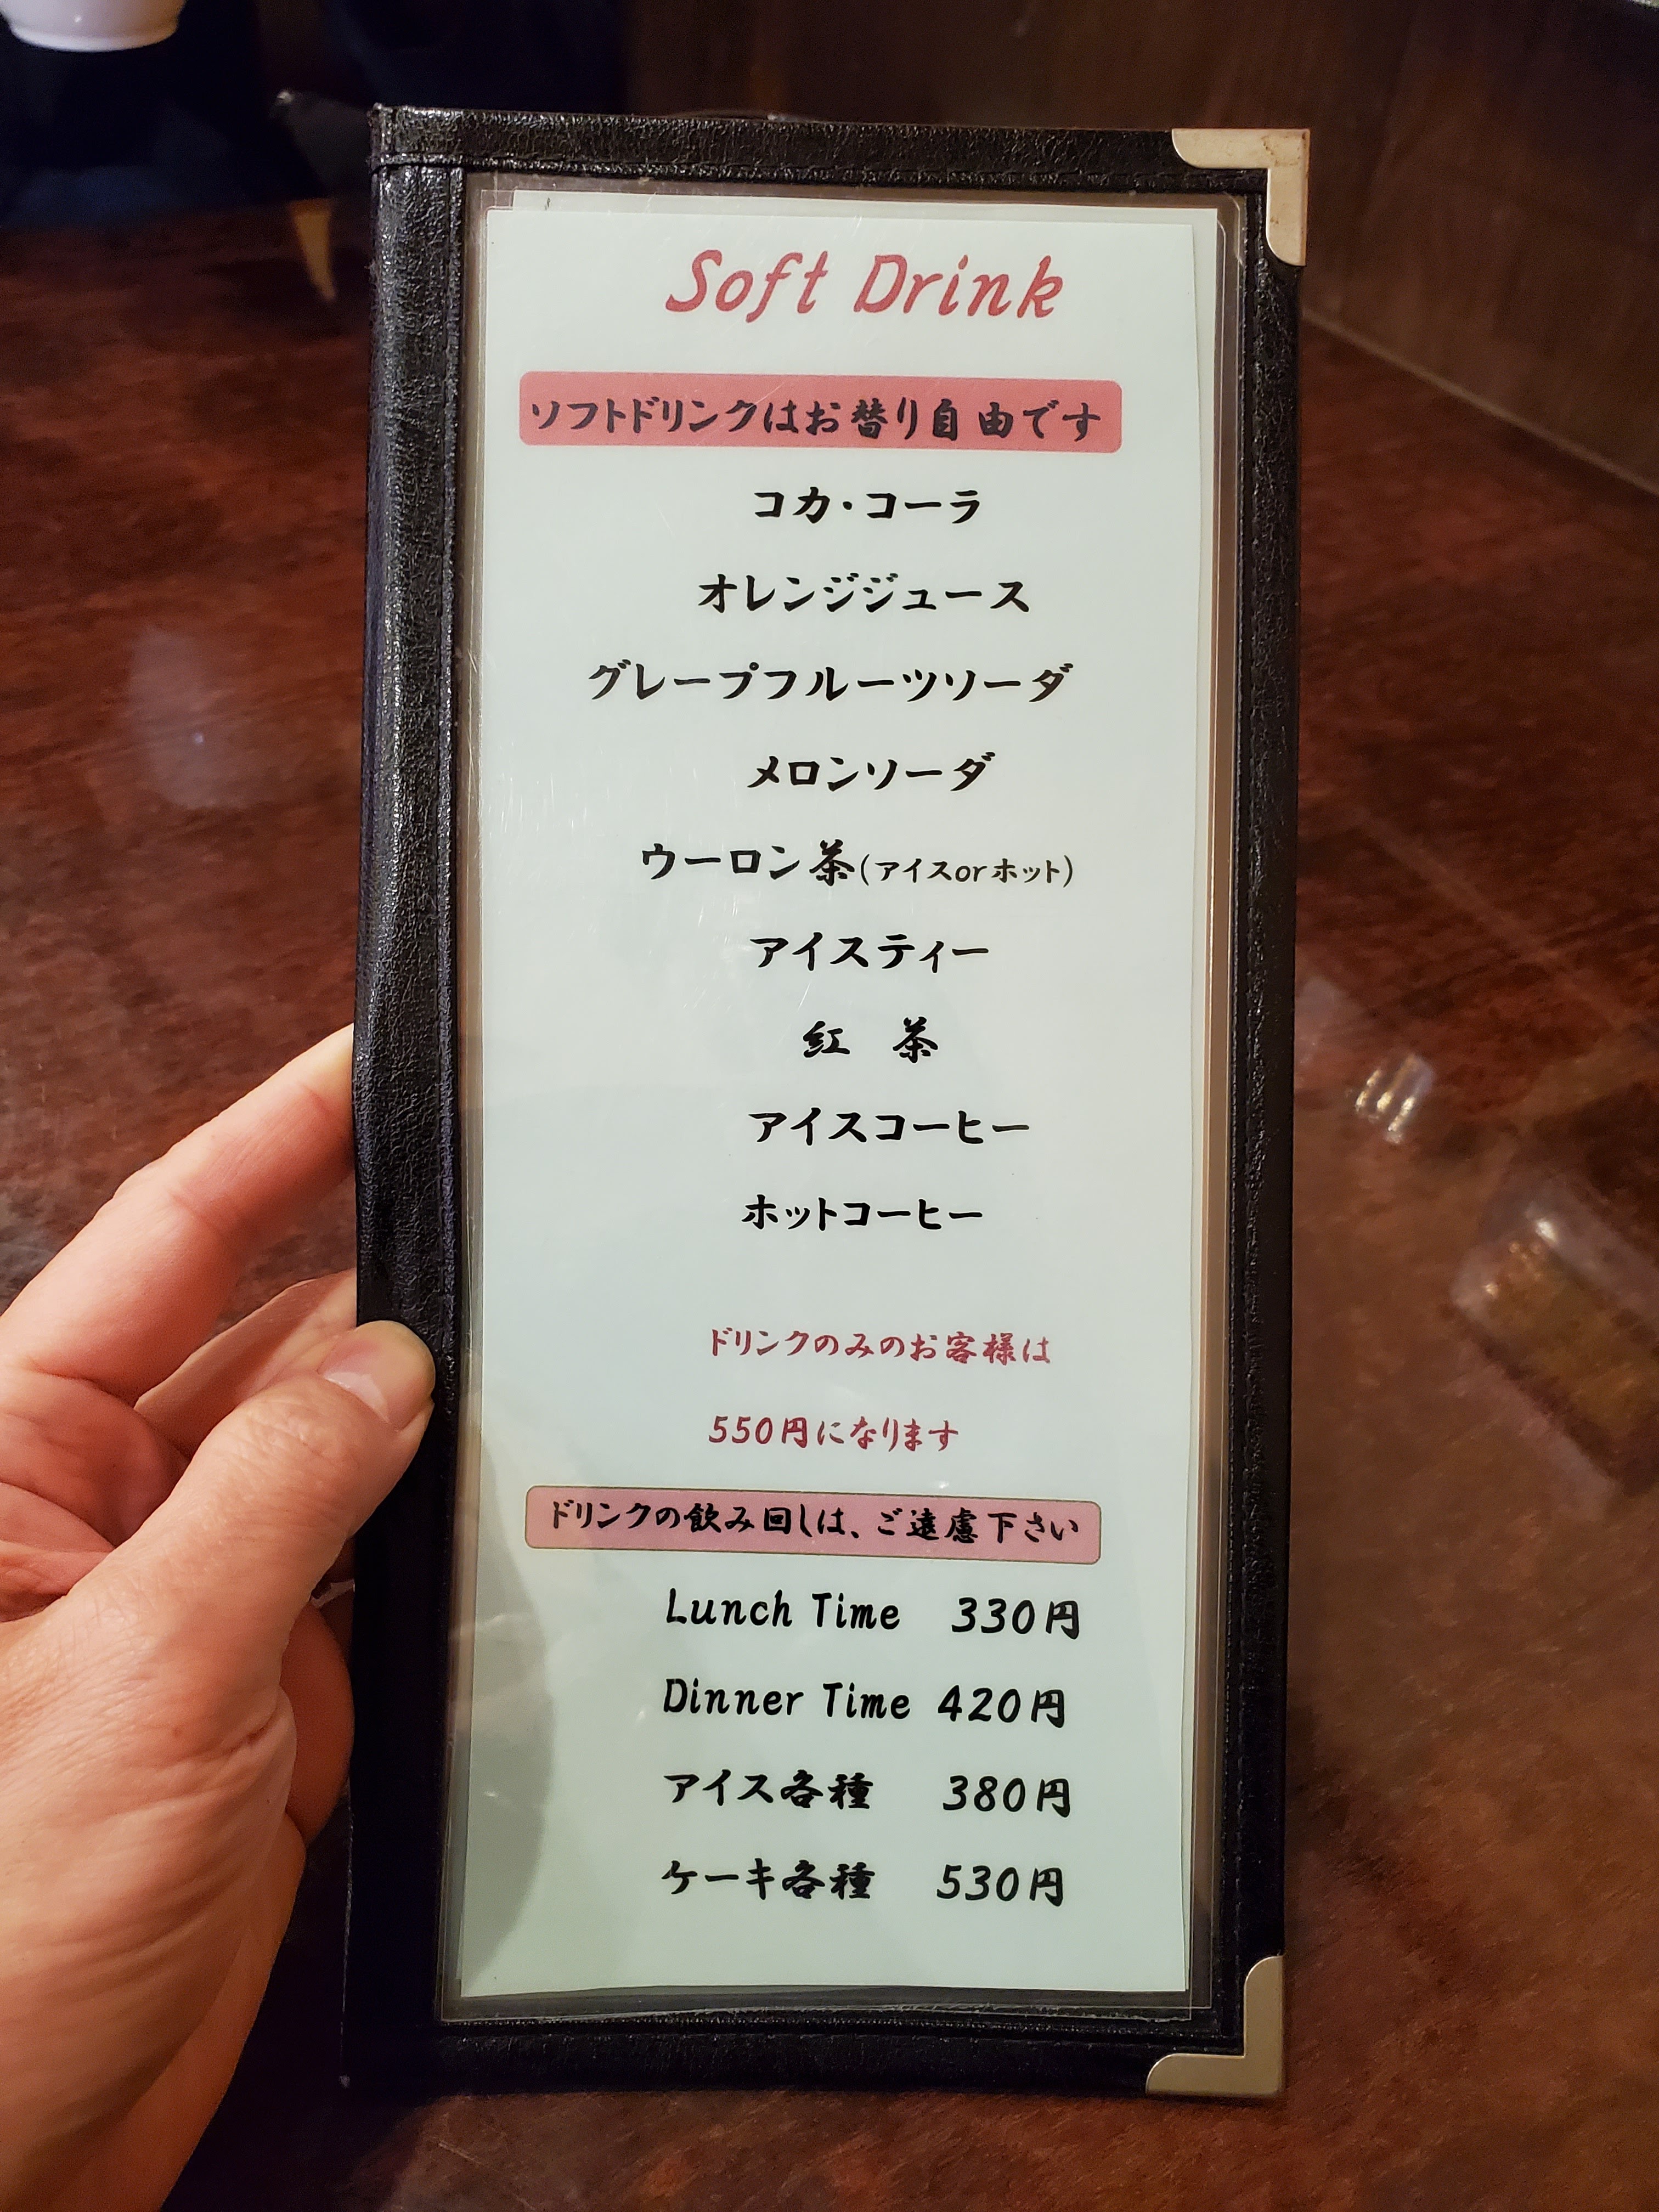 Soft Drink
ソフトドリンクはお替り自由です
コカ・コーラ
オレンジジュース
グレープフルーツソーダ
メロンソーダ
ウーロン茶(アイスorホット)
アイスティー
紅 茶
アイスコーヒー
ホットコーヒー
ドリンクのみのお客様は
550円になります
ドリンクの飲み回しは、ご遠慮下さい
Lunch Time 330円
Dinner Time 420円
アイス各種 380円
ケーキ各種 530円